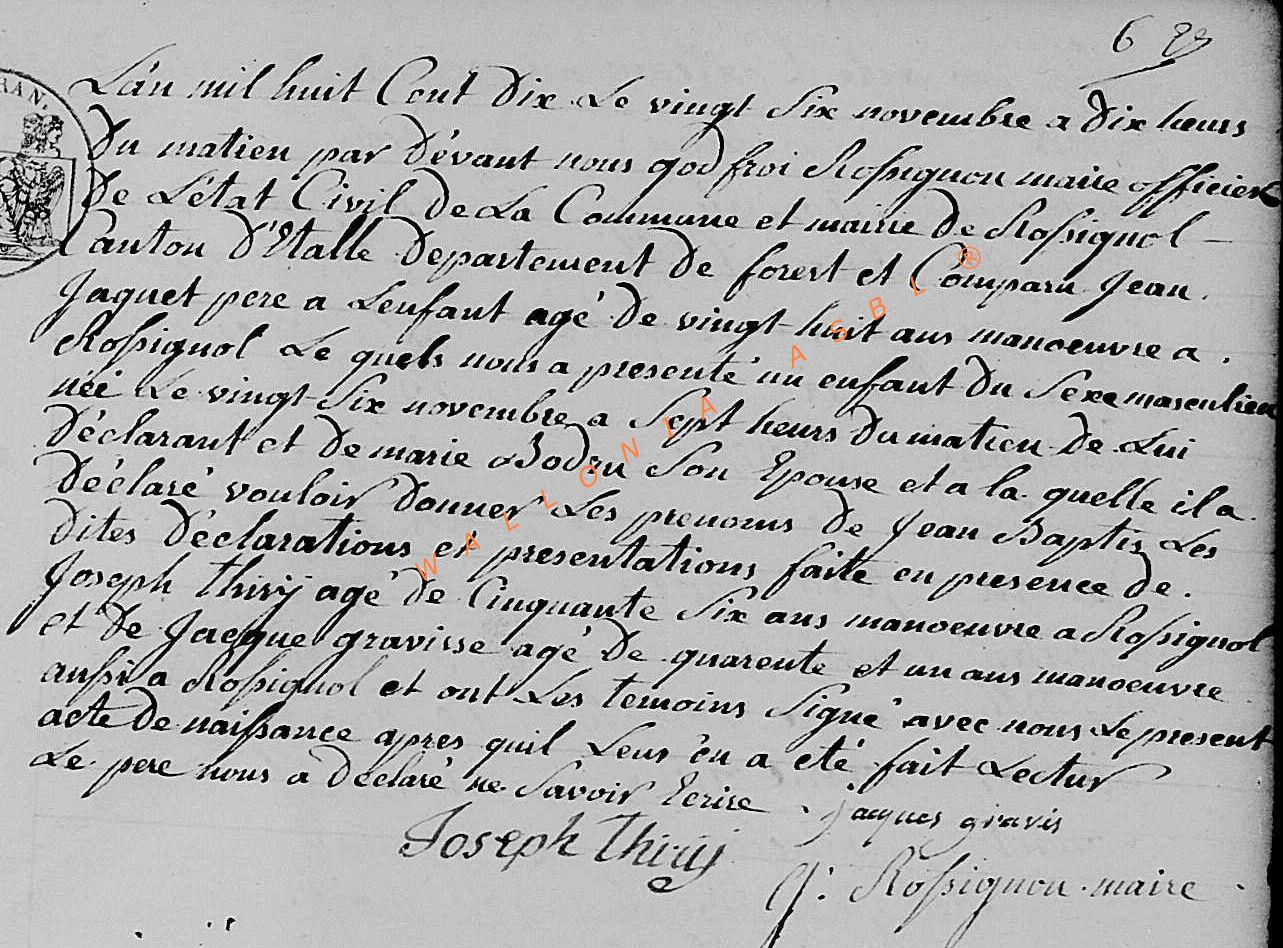 6 23
RAN.
L'an mil huit Cent Dix Le vingt Six novembre a Dix heurs
Du matien par Dévant nous godfroi Rossignon maire officier
De L'état Civil De La Commune et mairie de Rossignol
Canton D'Etalle Departement De forest et Comparu Jean
Jaquet pere a Lenfant agé De vingt huit ans manoeuvre a
Rossignol Le quels nous a presenté un enfant Du Sexe masculien
néé Le vingt Six novembre a Sept heurs Du matien De Lui
Déclarant et De marie Bodzu Son Epouse et a la quelle il a
Déclaré vouloir Donner Les prenoms De Jean Baptis Les
Dites Déclarations et presentations faite en presence de
Joseph thiry agé De Cinquante Six ans manoeuvre a Rossignol
et De Jacque gravisse agé De quarente et un ans manoeuvre
aussi a Rossignol et ont Les temoins Signé avec nous Le present
acte De naissance apres quil Leus én a eté fait Lectur
Le pere nous a Déclaré ne Savoir Ecrire
jaques gravis
Joseph thirij
g. Rossignon maire
WALLONIA ASBL ®